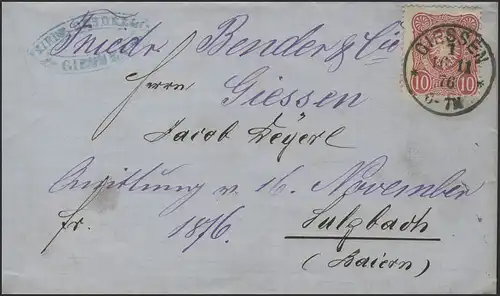 Friedr. Bender & Cie
GIESSEN
1
16 11
76
6-7N
10 10
Herrn Giessen
Jacob Zeyerl
Quittung v. 16. November
fr. 1876.
Sulzbach
(Baiern)